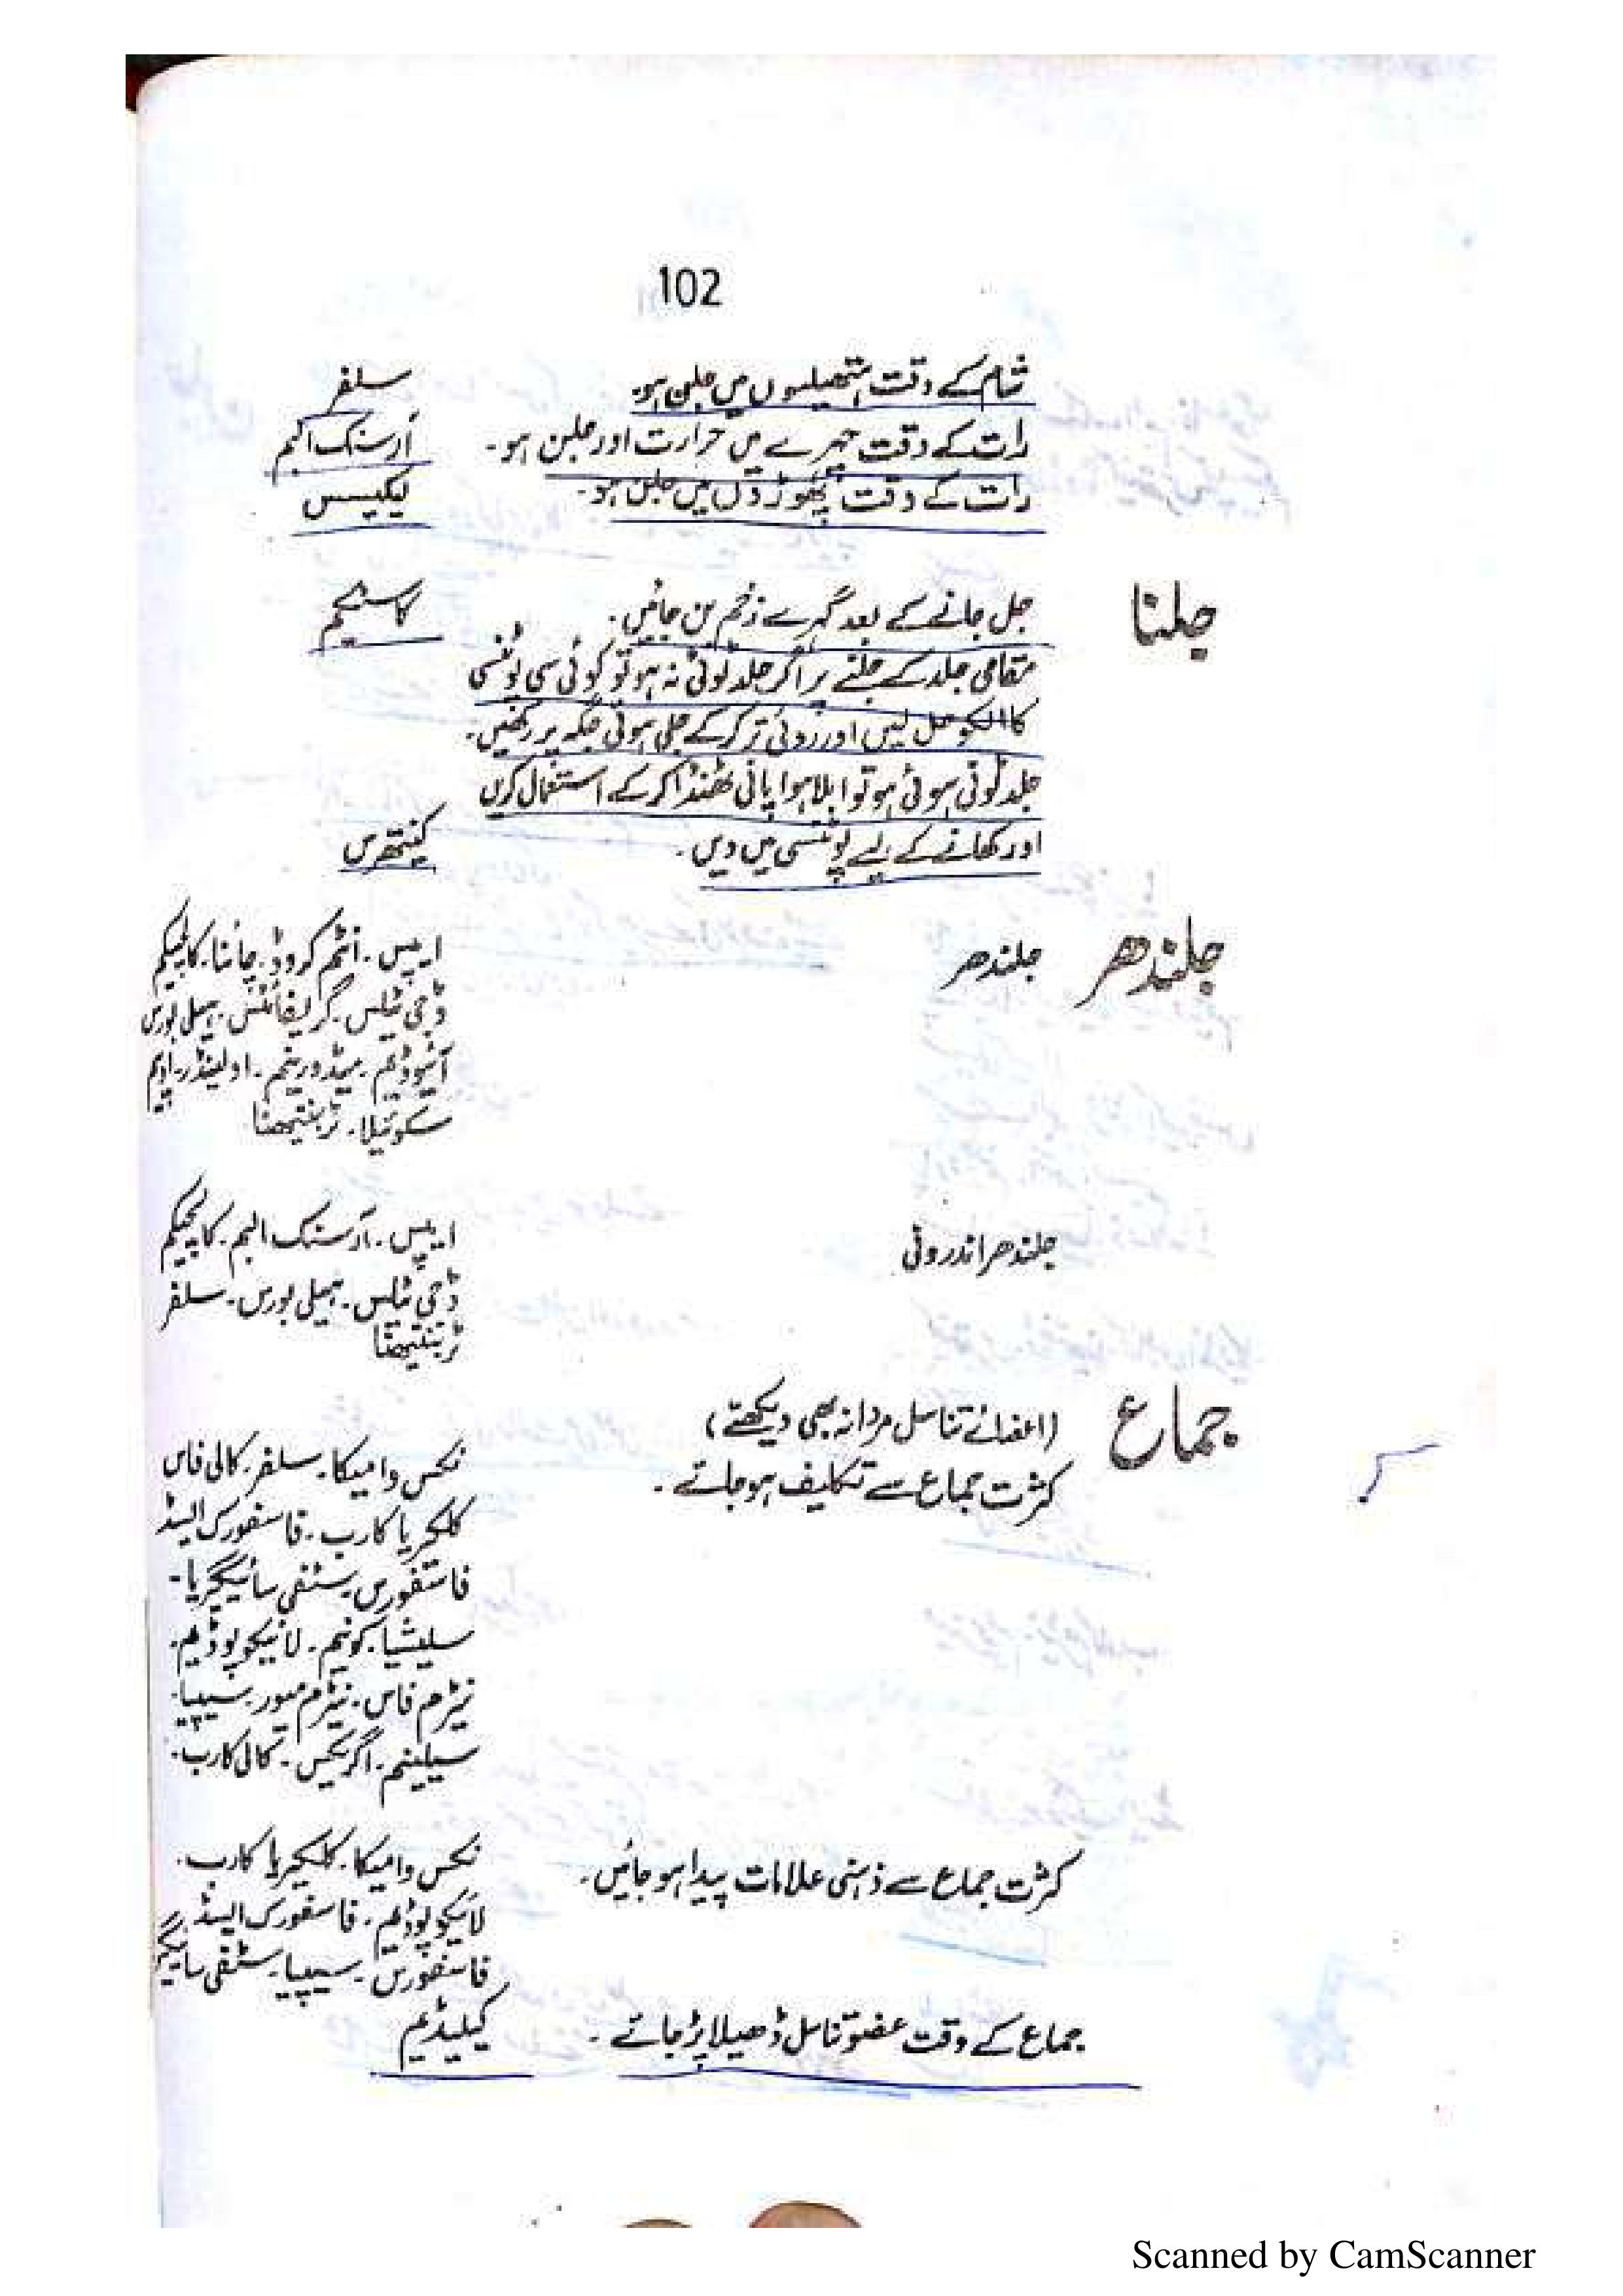 102
شام کے وقت ہتھیلیوں میں جلن ہو۔ سلفر
رات کے وقت چہرے میں حرارت اور جلن ہو۔ آرسنک البم
رات کے وقت پھوڑوں میں جلن ہو۔ لیکیسس
جلنا جل جانے کے بعد گہرے زخم بن جائیں۔ کاسٹیکم
مقامی جلد کے جلنے پر اگر جلد ٹوٹی نہ ہو تو کوئی سی پوٹنسی
کا الکوحل لیں اور روئی تر کر کے جلی ہوئی جگہ پر رکھیں۔
جلد ٹوٹی ہوئی ہو تو ابلا ہوا پانی ٹھنڈا کر کے استعمال کریں
اور کھانے کے لیے پوٹنسی میں دیں۔ کینتھرس
جلندھر جلندھر ایپس۔ انٹم کروڈ۔ چائنا۔ کالچیکم
ڈجی ٹیلس۔ گریفائٹس۔ ہیلی بورس
آئیوڈیم۔ میڈورینم۔ اولینڈر۔ اوپیم
سکوئیلا۔ ٹربنتھینا
جلندھر اندرونی ایپس۔ آرسنک البم۔ کالچیکم
ڈجی ٹیلس۔ ہیلی بورس۔ سلفر
ٹربنتھینا
جماع (اعضائے تناسل مردانہ بھی دیکھئے)
کثرت جماع سے تکلیف ہو جائے۔ نکس وامیکا۔ سلفر۔ کالی فاس
کلکیریا کارب۔ فاسفورک ایسڈ
فاسفورس۔ سٹفی سائیگیریا۔
سلیشیا۔ کونیم۔ لائیکوپوڈیم۔
نیٹرم فاس۔ نیٹرم میور۔ سیپیا۔
سیلینیم۔ اگریکس۔ کالی کارب۔
کثرت جماع سے ذہنی علامات پیدا ہو جائیں۔ نکس وامیکا۔ کلکیریا کارب۔
لائیکوپوڈیم۔ فاسفورک ایسڈ
فاسفورس۔ سیپیا۔ سٹفی سائیگیر
جماع کے وقت عضو تناسل ڈھیلا پڑ جائے۔ کیلیڈیم
Scanned by CamScanner